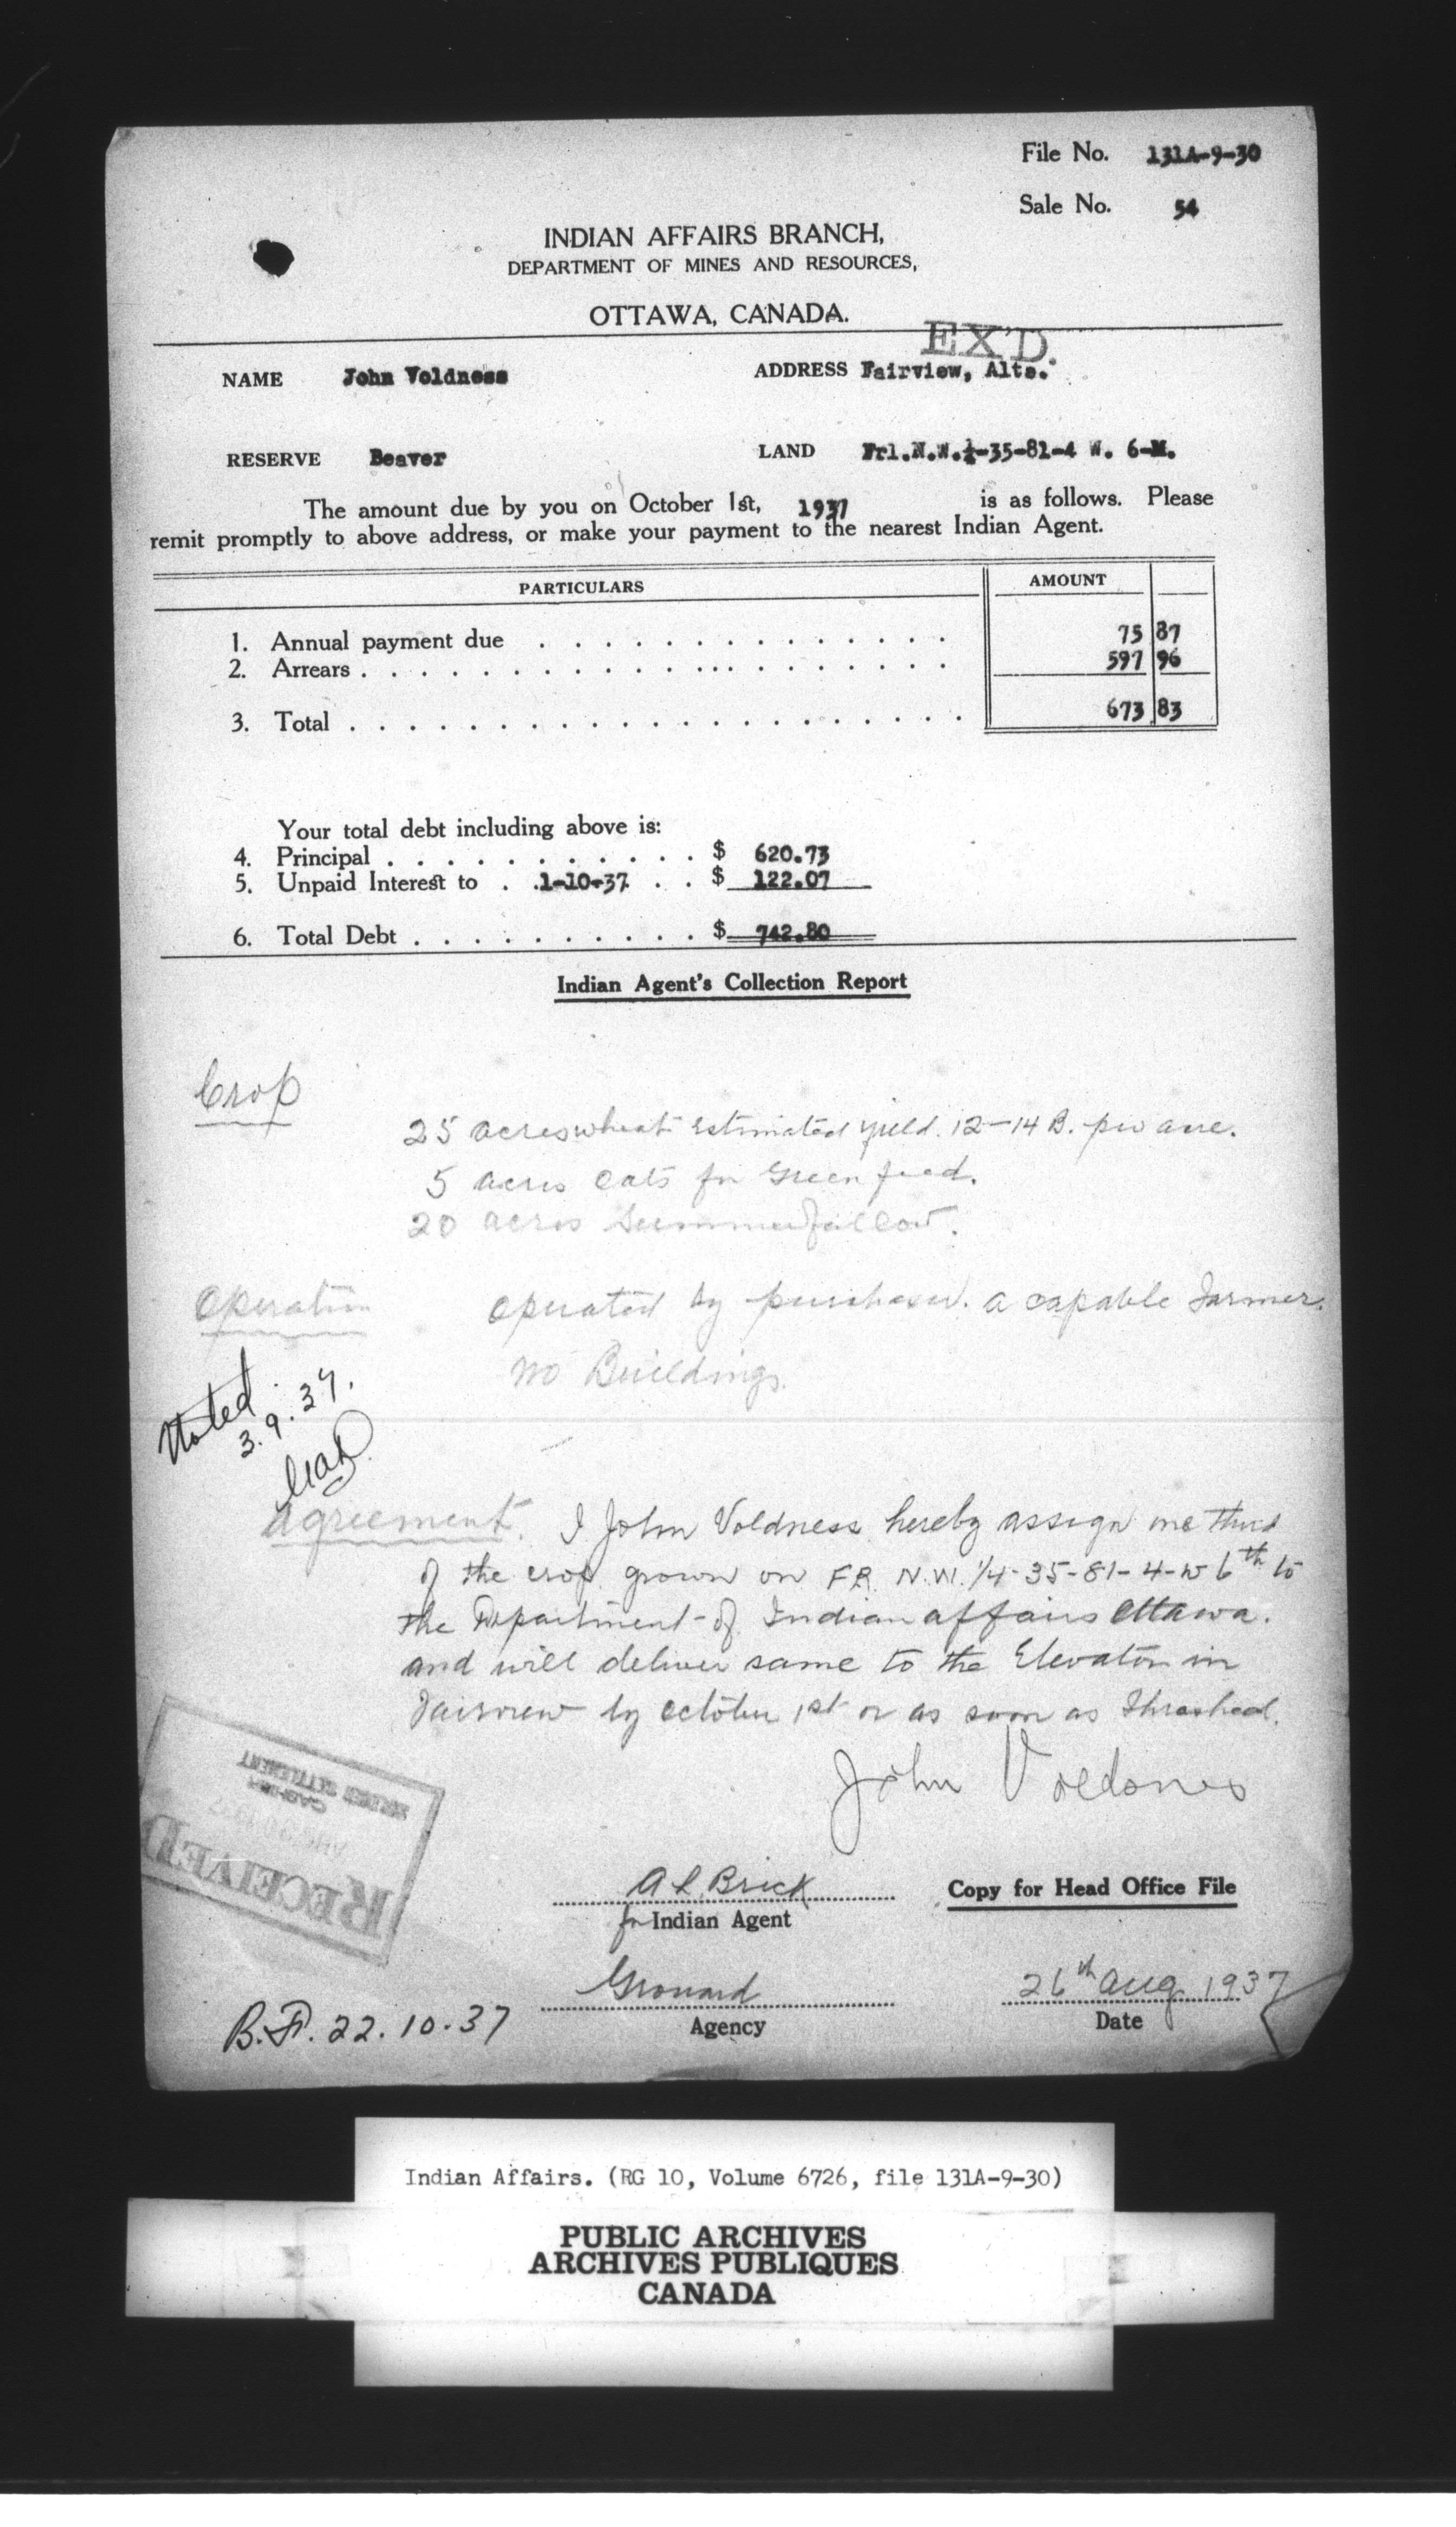 File No. 131A-9-30
Sale No. 54
INDIAN AFFAIRS BRANCH,
DEPARTMENT OF MINES AND RESOURCES,
OTTAWA, CANADA.
EX'D.
NAME John Voldness ADDRESS Fairview, Alta.
RESERVE Beaver LAND Frl.N.W.¼-35-81-4 W. 6-M.
The amount due by you on October 1st, 1937 is as follows. Please
remit promptly to above address, or make your payment to the nearest Indian Agent.
PARTICULARS AMOUNT
1. Annual payment due . . . . . . . . . . . . . . 75 87
2. Arrears . . . . . . . . . . . . . . . . . . . . 597 96
3. Total . . . . . . . . . . . . . . . . . . . . . 673 83
Your total debt including above is:
4. Principal . . . . . . . . . . . $ 620.73
5. Unpaid Interest to . .1-10-37 . . $ 122.07
6. Total Debt . . . . . . . . . . $ 742.80
Indian Agent's Collection Report
Crop
25 acres wheat Estimated yield. 12-14 B. per acre.
5 acres oats for Green feed.
20 acres Summerfallow.
Operation operated by purchaser. a capable Farmer.
No Buildings.
Noted
3.9.37.
Agreement. I John Voldness hereby assign one third
of the crop grown on FR. N.W. 1/4-35-81-4-W 6th to
the Department of Indian affairs Ottawa.
and will deliver same to the Elevator in
Fairview by October 1st or as soon as Thrashed.
John Voldness
RECEIVED
CASHIER
SOLDIER SETTLEMENT
A L Brick
for Indian Agent
Copy for Head Office File
Grouard
Agency
26th Aug 1937
Date
B.F. 22.10.37
Indian Affairs. (RG 10, Volume 6726, file 131A-9-30)
PUBLIC ARCHIVES
ARCHIVES PUBLIQUES
CANADA